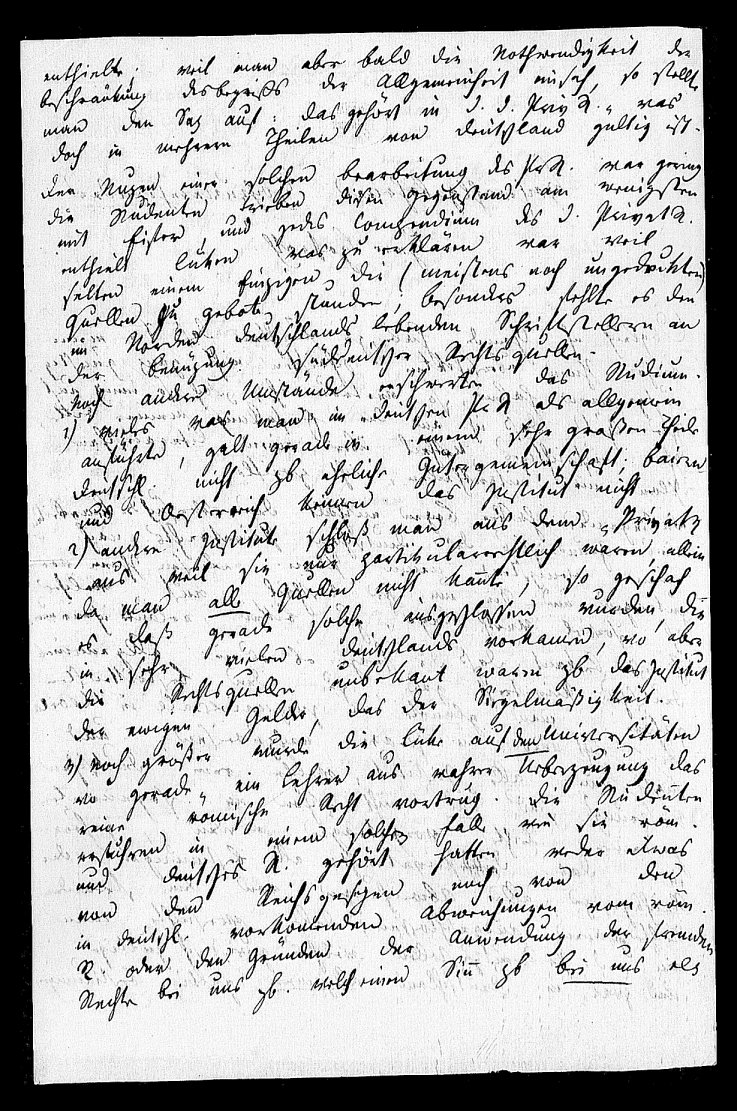 enthielte; weil man aber bald die Nothwendigkeit der
beschränkung des begriffs der Allgemeinheit einsah, so stellte
man den Saz auf: das gehört in d. d. Priv R. „ was
doch in mehrern Theilen von deutschland gültig ist.
Der Nuzen einer solchen bearbeitung des PrR. war gering
die Studenten trieben diesen Gegenstand am wenigsten
mit Eifer, und jedes Compendium des d. PrivatR.
enthielt lüken was zu erklären war weil
selten einem Einzigen die (meistens noch ungedrukten)
Quellen zu gebote standen; besonders fehlte es den
im Norden deutschlands lebenden Schriftstellern an
der benüzung süddeutscher Rechtsquellen.
Noch andere Umstände erschwerten das Studium.
1) vieles was man im deutschen Pr R als allgemein
anführte, galt gerade in einem sehr großen Theile
deutschl. nicht zb eheliche Gütergemeinschaft; baiern
und Oesterreich kennen das Institut nicht
2) andere Institute schloß man aus dem „PrivatR
aus weil sie nur partikularrechtlich waren, allein
da man all Quellen nicht kannte, so geschah
es daß gerade solche ausgeschlossen wurden, die
in sehr vielen deutschlands vorkamen, wo aber
die Rechtsquellen unbekant waren zb das Institut
der ewigen Gelder, das der Siegelmäßigkeit.
3) Noch größer wurde die lüke auf den Universitäten
wo gerade „ ein Lehrer aus wahrer Ueberzeugung das
reine römische Recht vortrug. die Studenten
erfuhren in einem solchen Falle, wie sie röm.
und deutsches R. gehört hatten weder etwas
von den Reichsgesezen noch von den
in deutschl. vorkomenden Abweichungen vom röm.
R. oder den Gründen der Anwendung der fremden
Rechte bei uns zb. welch einen Sinn zb bei uns als